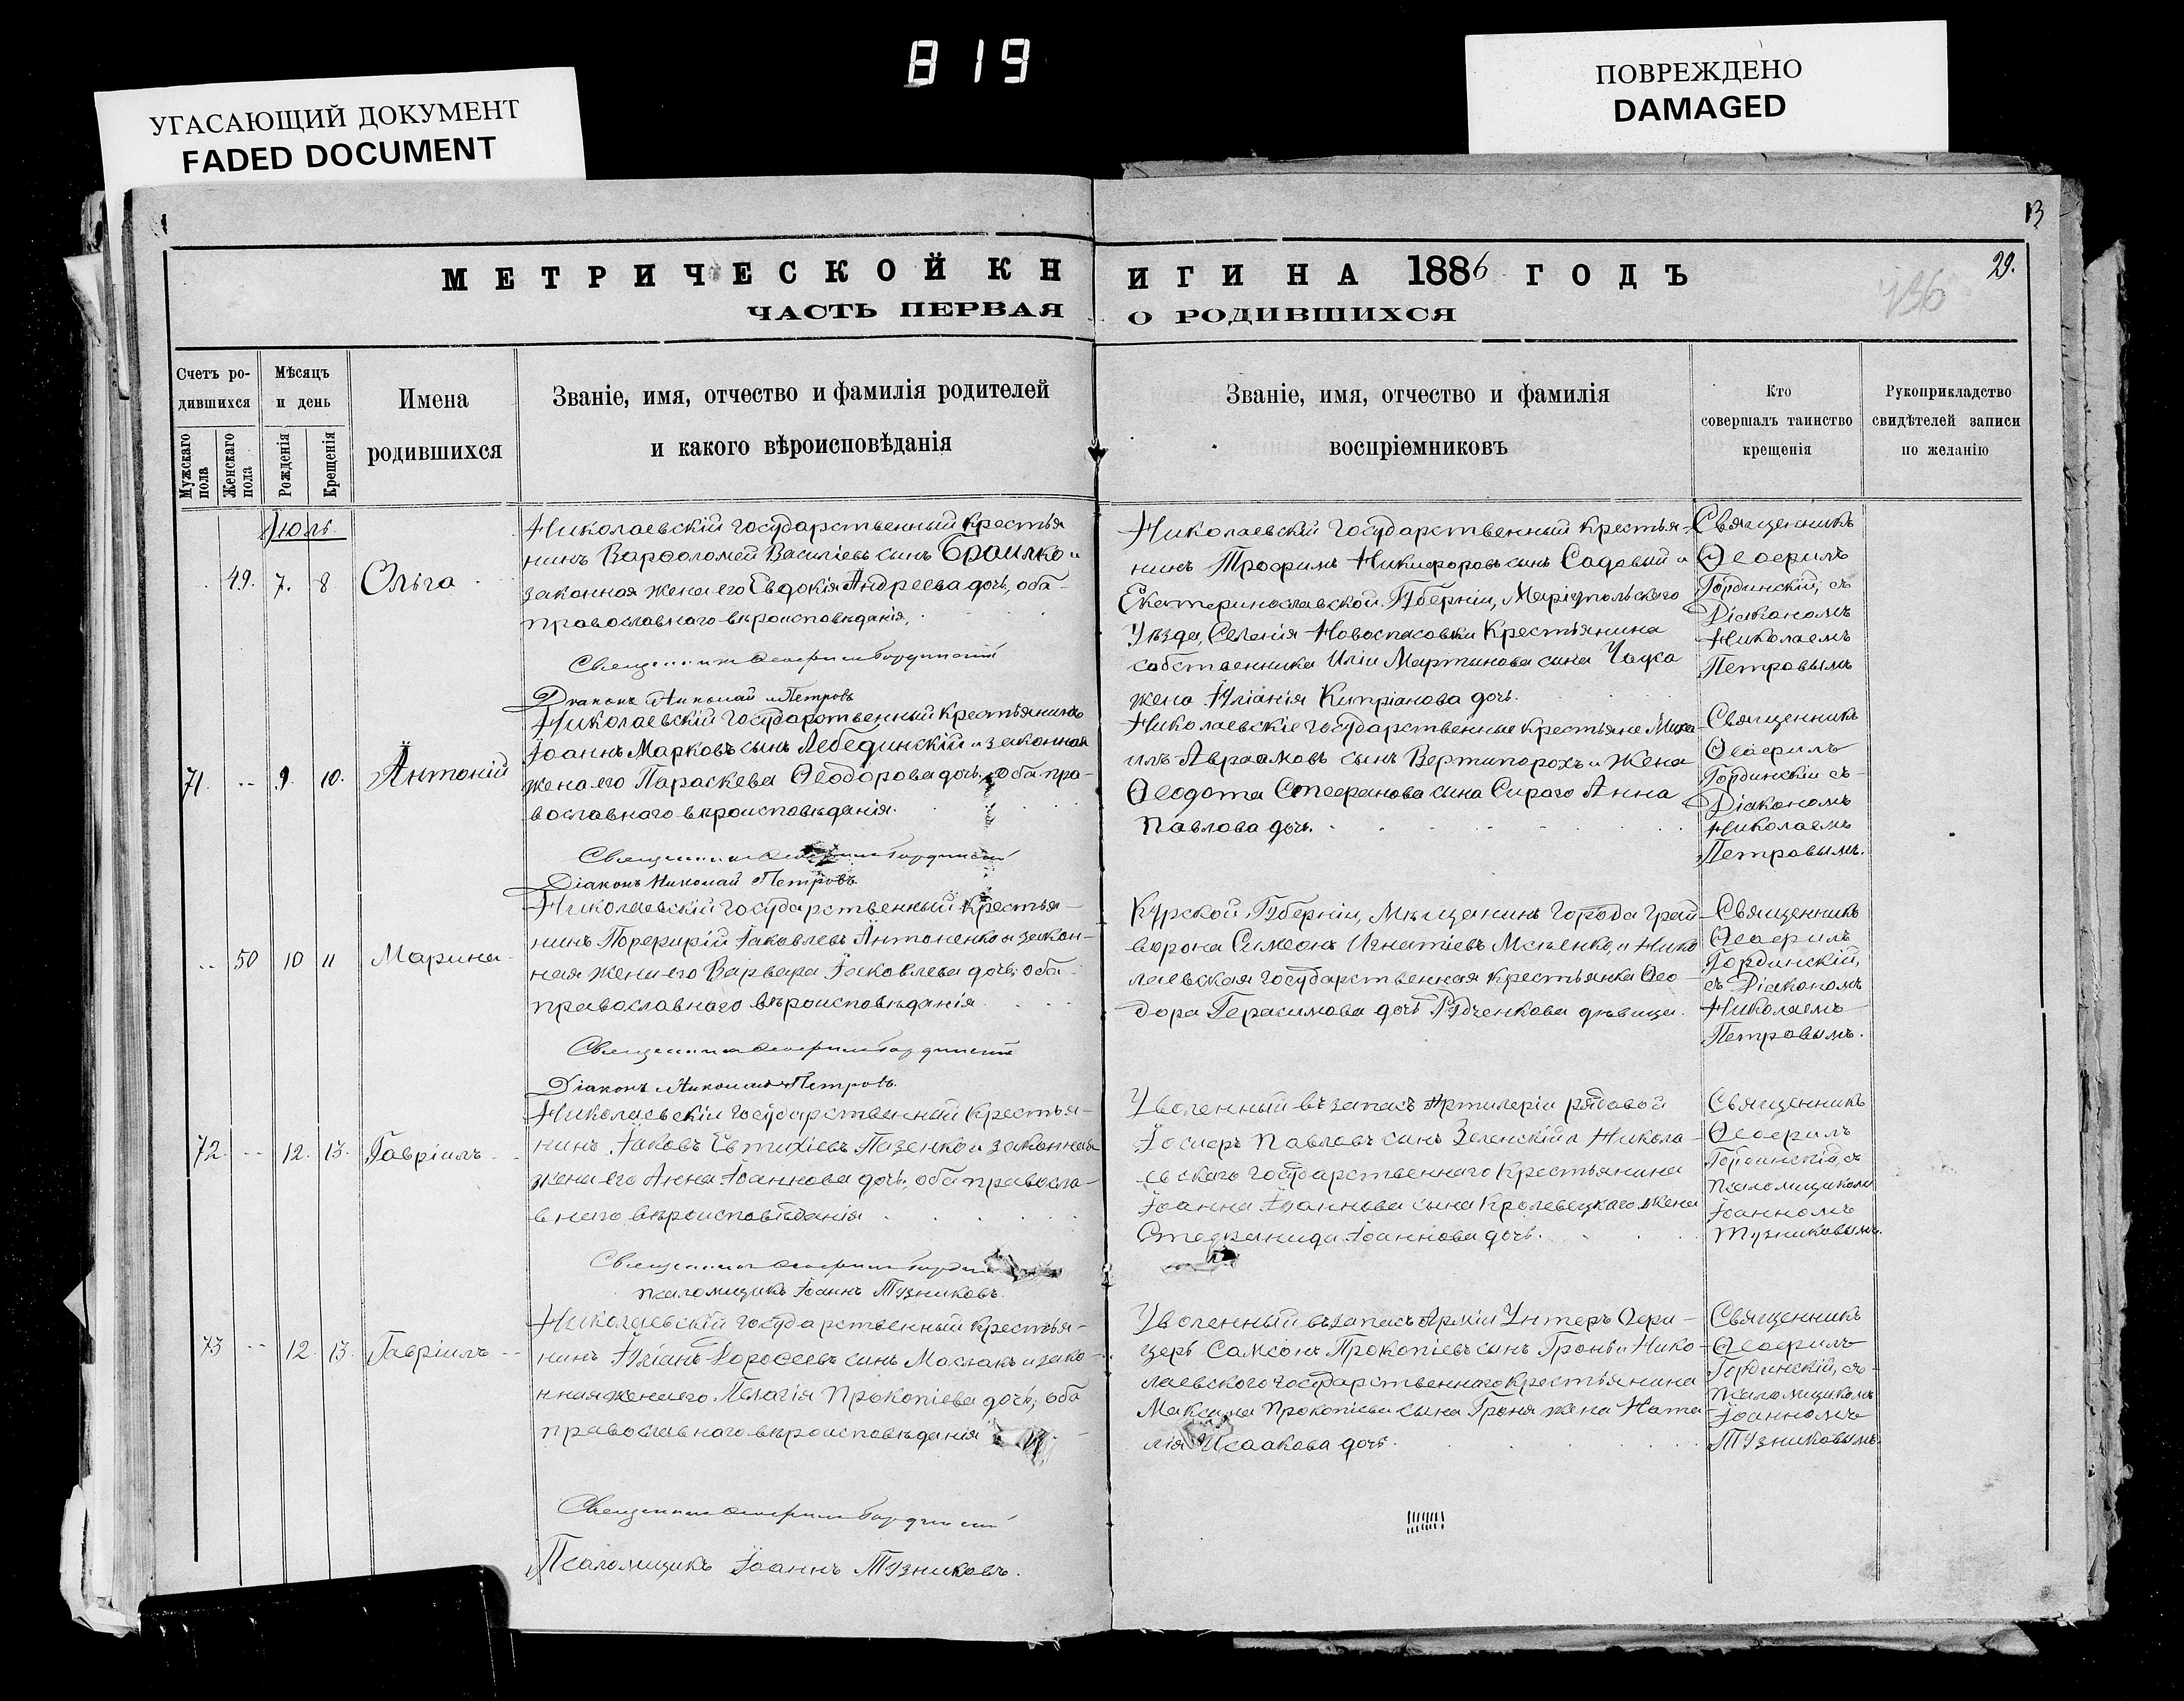 819
УГАСАЮЩИЙ ДОКУМЕНТ
FADED DOCUMENT
ПОВРЕЖДЕНО
DAMAGED
13
29.
436
МЕТРИЧЕСКОЙ КНИГИ НА 1886 ГОДЪ
ЧАСТЬ ПЕРВАЯ О РОДИВШИХСЯ
Счетъ ро-
дившихся
Мужскаго пола
Женскаго пола
Мѣсяцъ
и день
Рожденія
Крещенія
Имена
родившихся
Званіе, имя, отчество и фамилія родителей
и какого вѣроисповѣданія
Званіе, имя, отчество и фамилія
воспріемниковъ
Кто
совершалъ таинство
крещенія
Рукоприкладство
свидѣтелей записи
по желанію
Июль.
49. 7. 8 Ольга
Николаевскій государственный крестья
нинъ Варѳоломей Василіевъ сынъ Браилко и
законная жена его Евдокія Андреева дочь, оба
православнаго вѣроисповѣданія,
Священникъ Ѳеофилъ Гординскій
Діаконъ Николай Петровъ
Николаевскій государственный крестья-
нинъ Трофимъ Никифоровъ сынъ Садовый и
Екатеринославской Губерніи, Маріупольскаго
Уѣзда, Селенія Новоспасовки Крестьянина
собственника Иліи Мартинова сына Чауса
жена Іуліанія Кипріанова дочь.
Священникъ
Ѳеофилъ
Гординскій, съ
Діакономъ
Николаемъ
Петровымъ
71. 9. 10. Антоній
Николаевскій государственный крестьянинъ
Іоаннъ Марковъ сынъ Лебединскій и законная
жена его Параскева Ѳеодорова дочь, оба пра-
вославнаго вѣроисповѣданія.
Священникъ Ѳеофилъ Гординскій
Діаконъ Николай Петровъ
Николаевскіе государственные крестьяне Миха
илъ Авраамовъ сынъ Вертипорохъ и жена
Ѳеодота Стефанова сына Сирого Анна
Павлова дочь.
Священникъ
Ѳеофилъ
Гординскій съ
Діакономъ
Николаемъ
Петровымъ.
50 10 11 Марина
Николаевскій государственный крестья-
нинъ Порфирій Іаковлевъ Антоненко и закон-
ная жена его Варвара Іаковлева дочь, оба
православнаго вѣроисповѣданія
Священникъ Ѳеофилъ Гординскій
Діаконъ Николай Петровъ.
Курской Губерніи, Мѣщанинъ города Грай
ворона Симеонъ Игнатіевъ и Нико
лаевская государственная крестьянка Ѳео-
дора Герасимова дочь Рудченкова дѣвица.
Священникъ
Ѳеофилъ
Гординскій,
съ Діакономъ
Николаемъ
Петровымъ.
72. 12. 13. Гавріилъ
Николаевскій государственный крестья-
нинъ Іаковъ Евтихіевъ Пазенко и законная
жена его Анна Іоаннова дочь, оба правосла-
внаго вѣроисповѣданія
Священникъ Ѳеофилъ Гординскій
Псаломщикъ Іоаннъ Тузниковъ.
Уволенный въ запасъ Артилеріи рядовой
Іосифъ Павловъ сынъ Зеленскій и Никола-
евскаго государственнаго крестьянина
Іоанна Іоаннова сына Кролевецкаго жена
Стефанида Іоаннова дочь.
Священникъ
Ѳеофилъ
Гординскій, съ
псаломщикомъ
Іоанномъ
Тузниковымъ.
73 12. 13. Гавріилъ
Николаевскій государственный крестья-
нинъ Іуліанъ Дороѳеевъ сынъ Маслакъ и зако-
нная жена его Пелагія Прокопіева дочь, оба
православнаго вѣроисповѣданія
Священникъ Ѳеофилъ Гординскій
Псаломщикъ Іоаннъ Тузниковъ.
Уволенный въ запасъ Арміи Унтеръ Офи-
церъ Самсонъ Прокопіевъ сынъ Гронь и Нико-
лаевского государственнаго крестьянина
Максима Прокопіева сына Гроня жена Ната
лія Исаакова дочь.
Священникъ
Ѳеофилъ
Гординскій, съ
псаломщикомъ
Іоанномъ
Тузниковымъ.